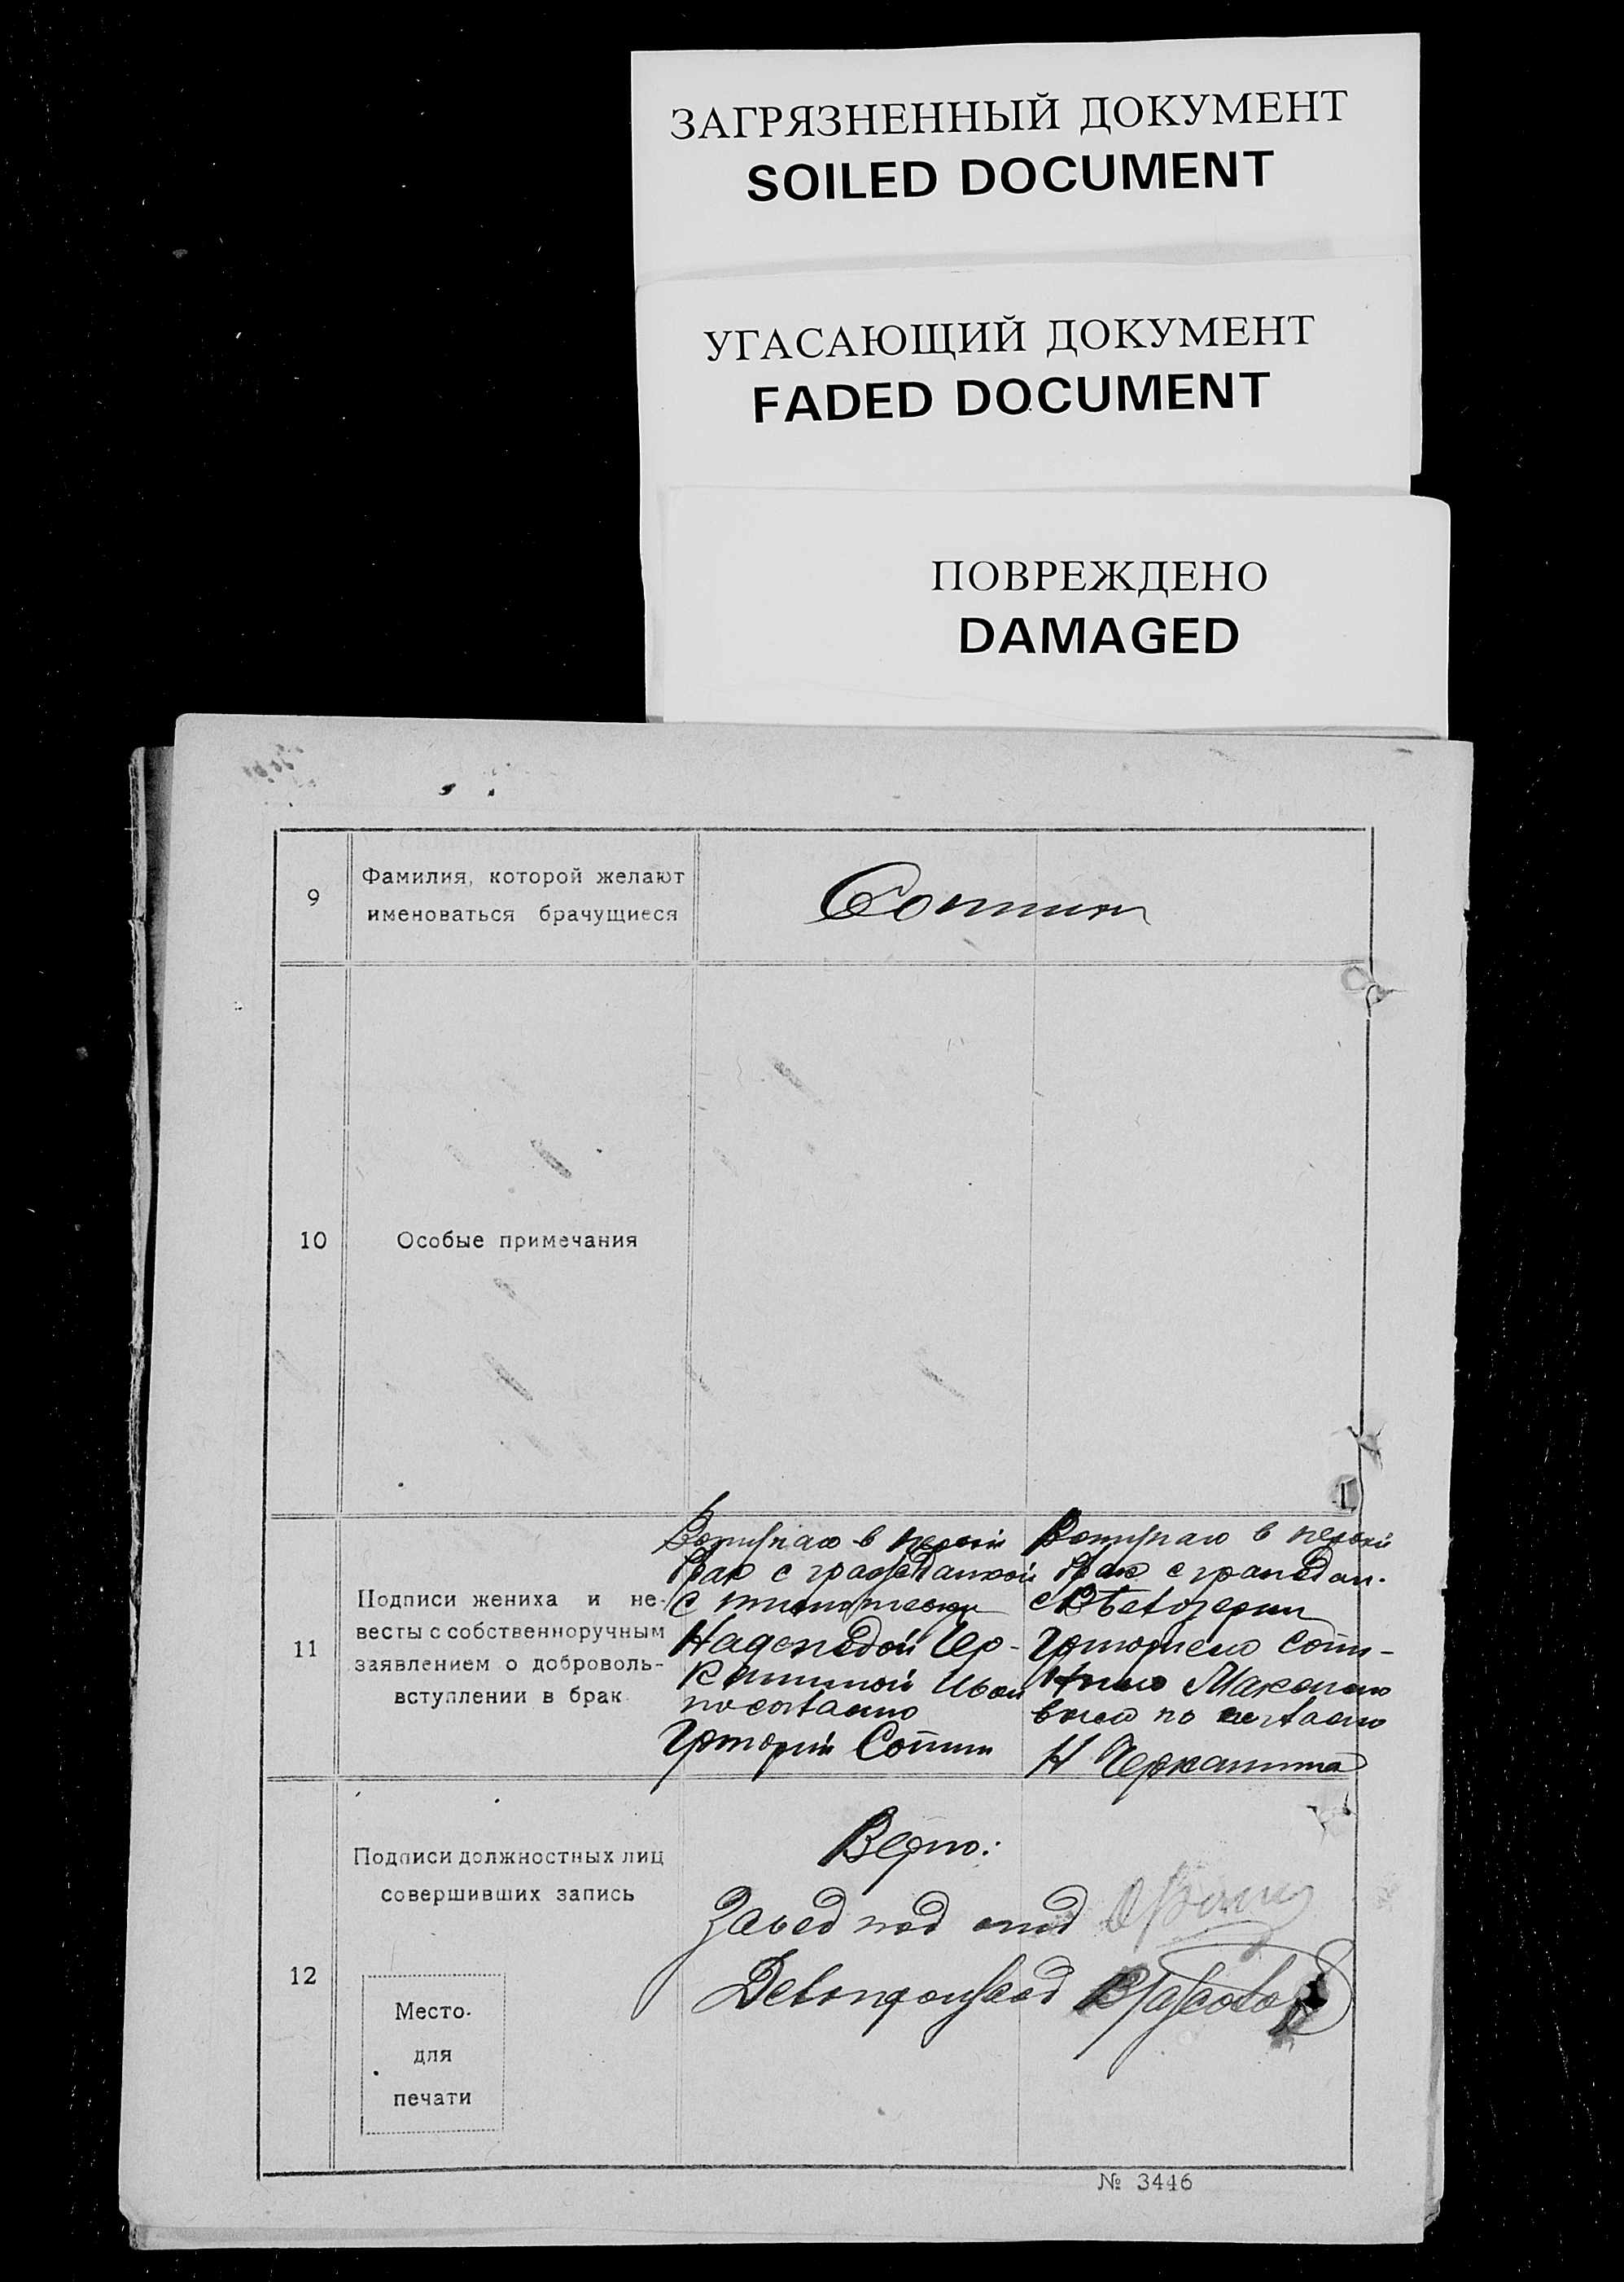 ЗАГРЯЗНЕННЫЙ ДОКУМЕНТ
SOILED DOCUMENT
УГАСАЮЩИЙ ДОКУМЕНТ
FADED DOCUMENT
ПОВРЕЖДЕНО
DAMAGED
9
Фамилия, которой желают
именоваться брачущиеся
Сотник
10
Особые примечания
11
Подписи жениха и не-
весты с собственноручным
заявлением о доброволь-
вступлении в брак
Вступаю в первый
брак с гражданкой
с
Надеждой Чер-
по согласию
Григорий Сотник
Вступаю в первый
брак с граждан.
по согласию
Н Черкашина
12
Подписи должностных лиц
совершивших запись
Место
для
печати
Верно:
Завед под отд
Делопроизвод
№ 3446